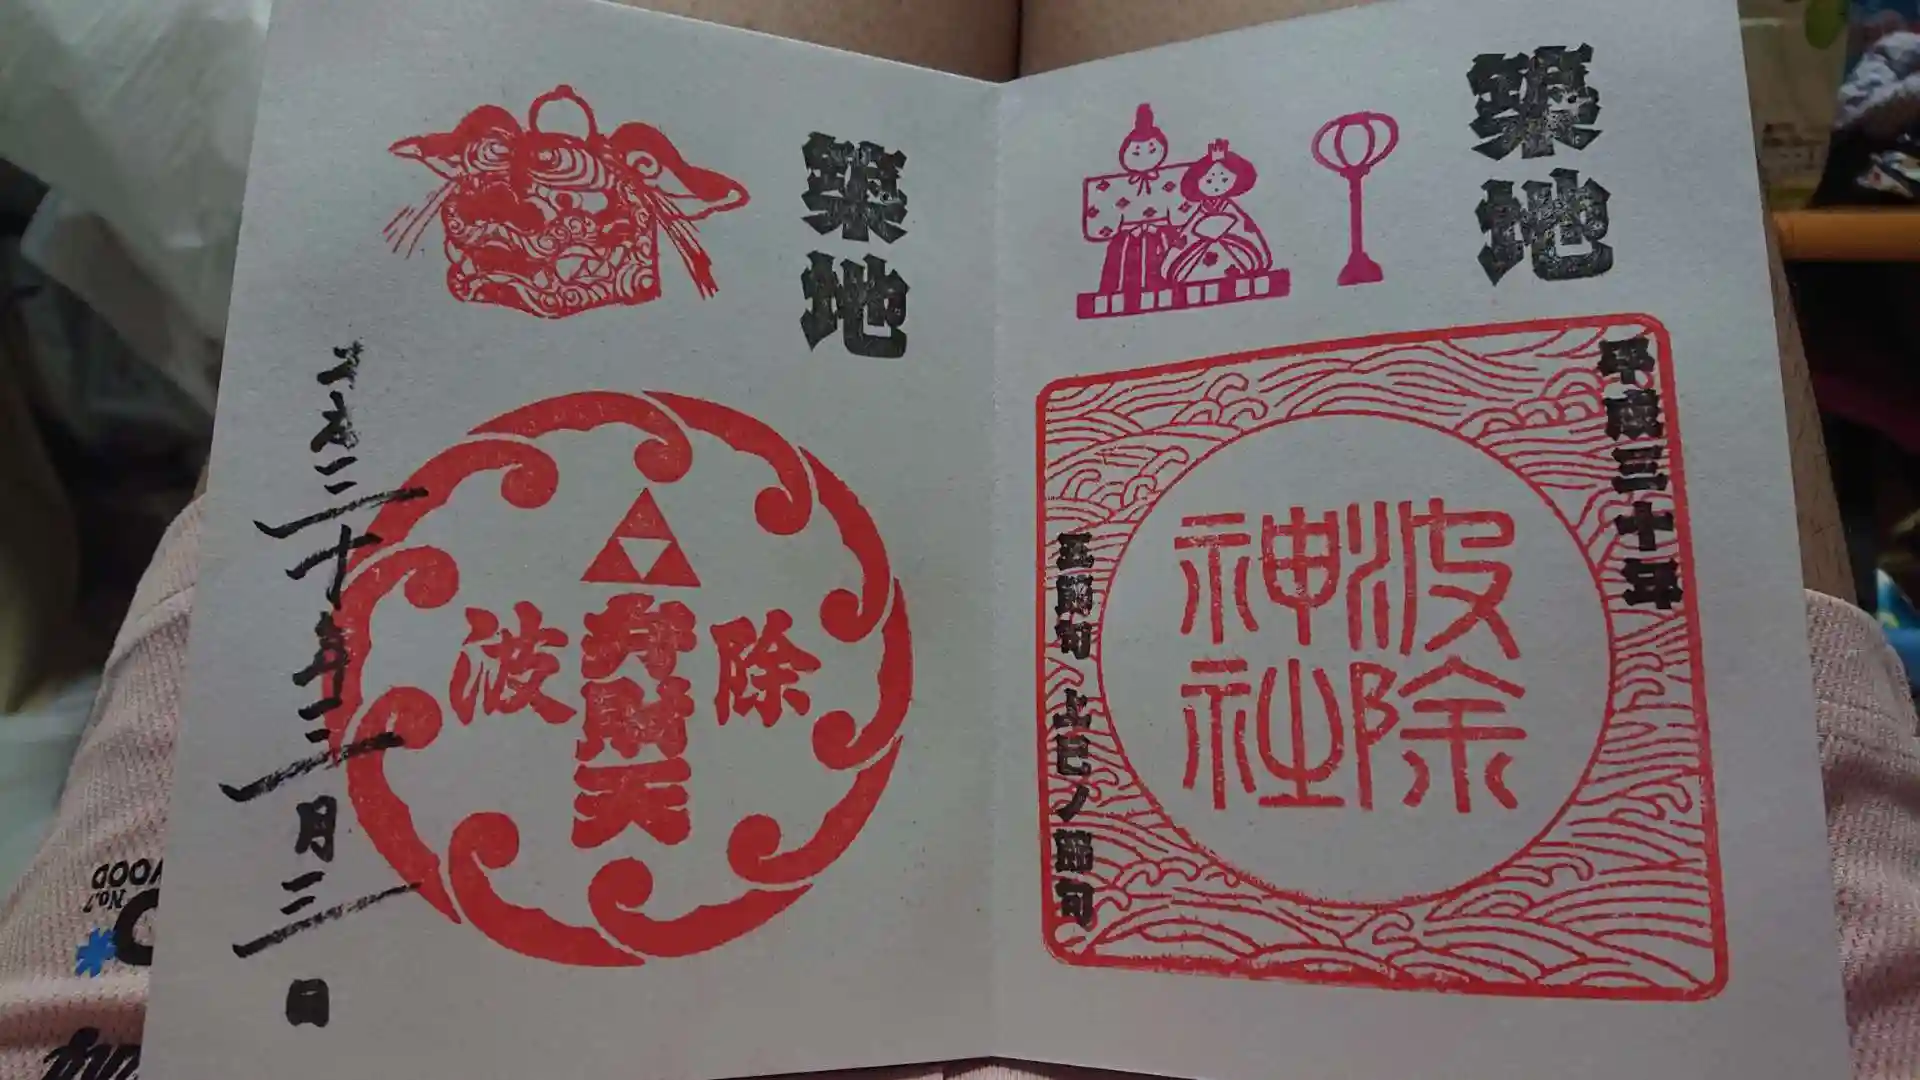 築地
平成三十年
波除
神社
五節句 上巳ノ節句
築地
波除
弁財天
平成三十年三月三日
No.7